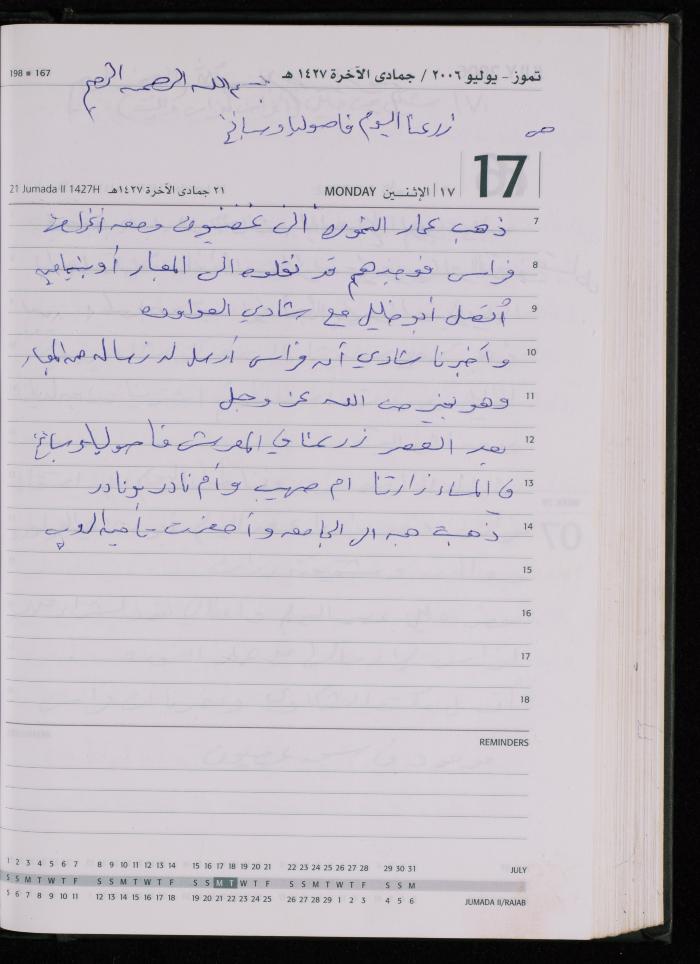 198 ■ 167
تموز - يوليو ٢٠٠٦ / جمادى الآخرة ١٤٢٧ هـ
بسم الله الرحمن الرحيم
زرعنا اليوم فاصوليا وسبانخ
21 Jumada II 1427H ٢١ جمادى الآخرة ١٤٢٧هـ MONDAY الإثنـيـن ١٧ 17
7 ذهب عمار النمورة الى عصيون ومعه أغراض
8 فراس فوجدهم قد نقلوه الى المعبار أو بنيامين
9 أتصل أبو خليل مع شادي العواوده
10 وأخبرنا شادي أن فراس أرسل له رساله من المعبار
11 وهو بخير من الله عز وجل
12 بعد العصر زرعنا في المعرش فاصوليا وسبانخ
13 في المساء زارتنا ام صهيب وأم نادر ونادر
14 ذهبت هبه الى الجامعه وأحضرت
15
16
17
18
REMINDERS
1 2 3 4 5 6 7 8 9 10 11 12 13 14 15 16 17 18 19 20 21 22 23 24 25 26 27 28 29 30 31 JULY
S S M T W T F S S M T W T F S S M T W T F S S M T W T F S S M
5 6 7 8 9 10 11 12 13 14 15 16 17 18 19 20 21 22 23 24 25 26 27 28 29 1 2 3 4 5 6 JUMADA II/RAJAB